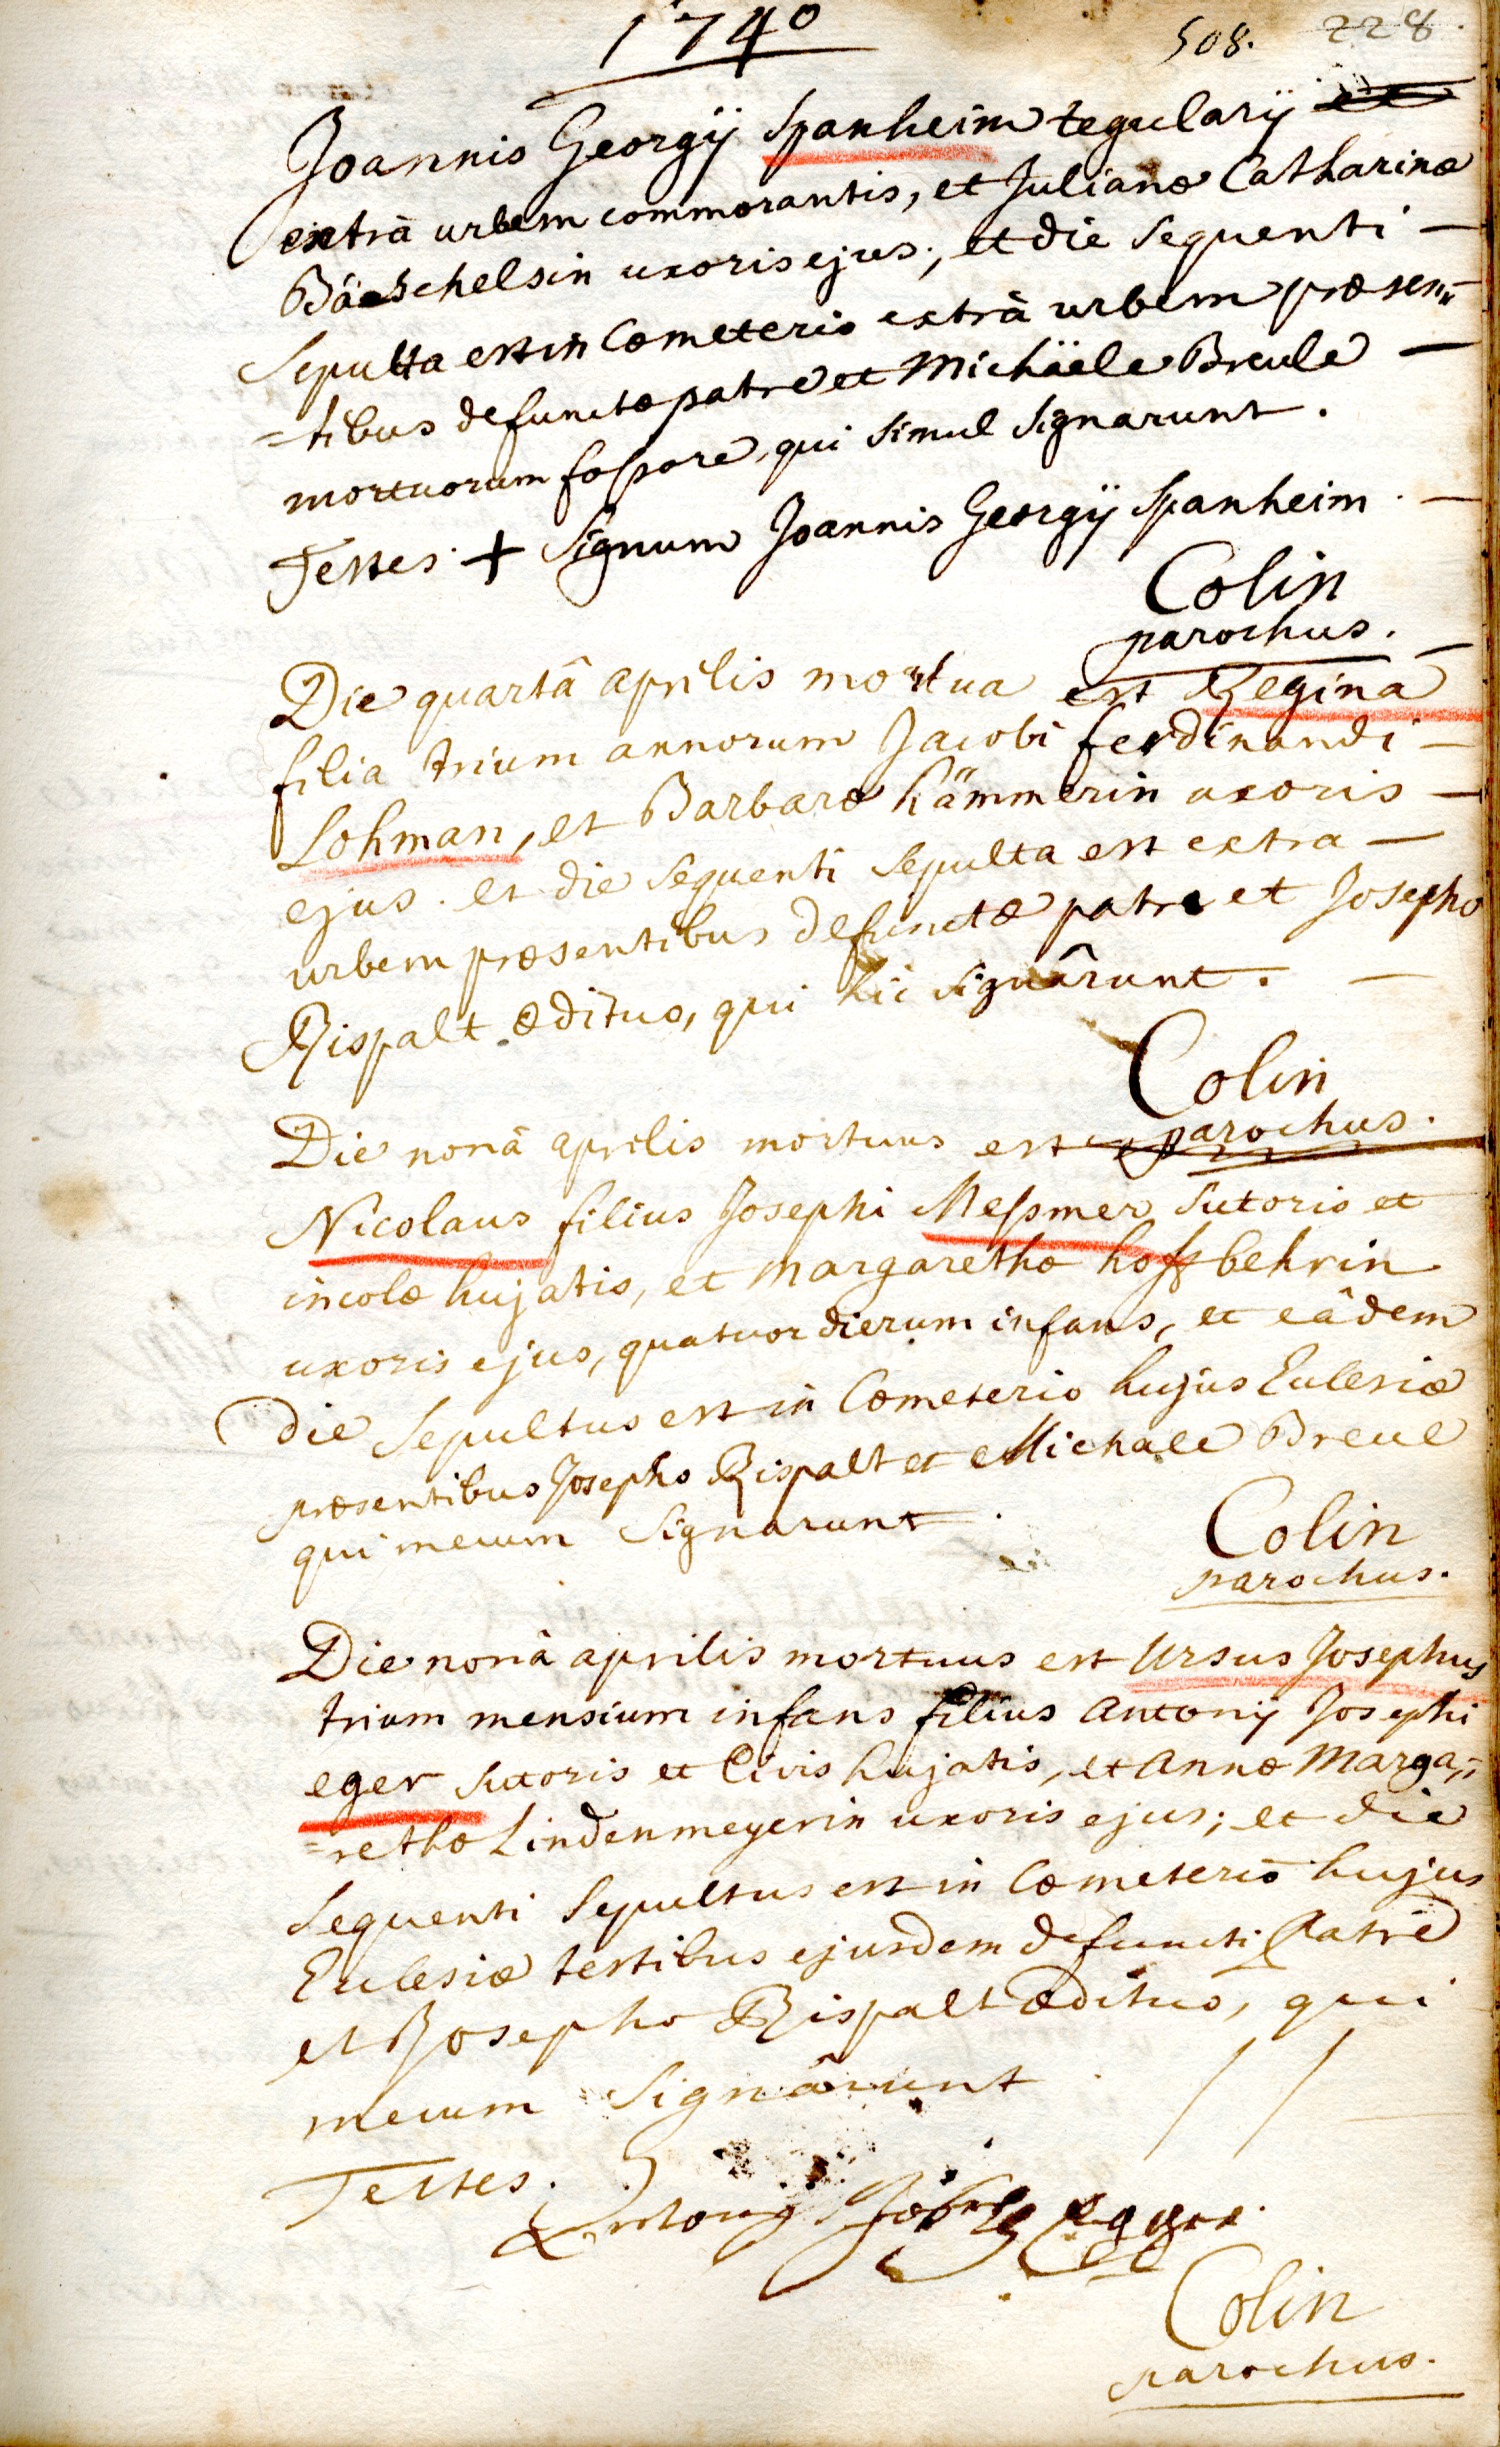 1740
508. 228.
Joannis Georgÿ Spanheim tegularÿ
extrà urbem commorantis, et Julianæ Catharinæ
Bäeschelsin uxoris ejus, et die sequenti —
sepulta est in Cœmeterio extrà urbem præsen„
=tibus defunctæ patre et Michäele Breule —
mortuorum fossore, qui simul signarunt.
Testes + Signum Joannis Georgÿ Spanheim. —
Colin
parochus. —
Die quartâ aprilis mortua est Regina
filia trium annorum Jacobi ferdinandi —
Lohman, et Barbaræ Kämmerin uxoris —
ejus. et die sequenti sepulta est extra —
urbem præsentibus defunctæ patre et Josepho
Rispalt ædituo, qui hic signârunt. —
Colin
parochus.
Die nonâ aprilis mortuus est
Nicolaus filius Josephi Messmer Sutoris et
incolæ hujatis, et Margarethæ hoffbehrin
uxoris ejus, quatuor dierum infans, et eâdem
die sepultus est in Cœmeterio hujus Ecclesiæ
præsentibus Josepho Rispalt et Michaele Breul
qui mecum signarunt.
Colin
parochus.
Die nonâ aprilis mortuus est Ursus Josephus
trium mensium infans filius Antonÿ Josephi
eger sutoris et Civis hujatis, et Annæ Marga„
=rethæ Lindenmeyerin uxoris ejus; et die
sequenti sepultus est in Cœmeterio hujus
Ecclesiæ testibus ejusdem defuncti Patre
et Josepho Rispalt ædituo, qui
mecum signârunt.
Testes.
Antonÿ Joseph Egger.
Colin
parochus.